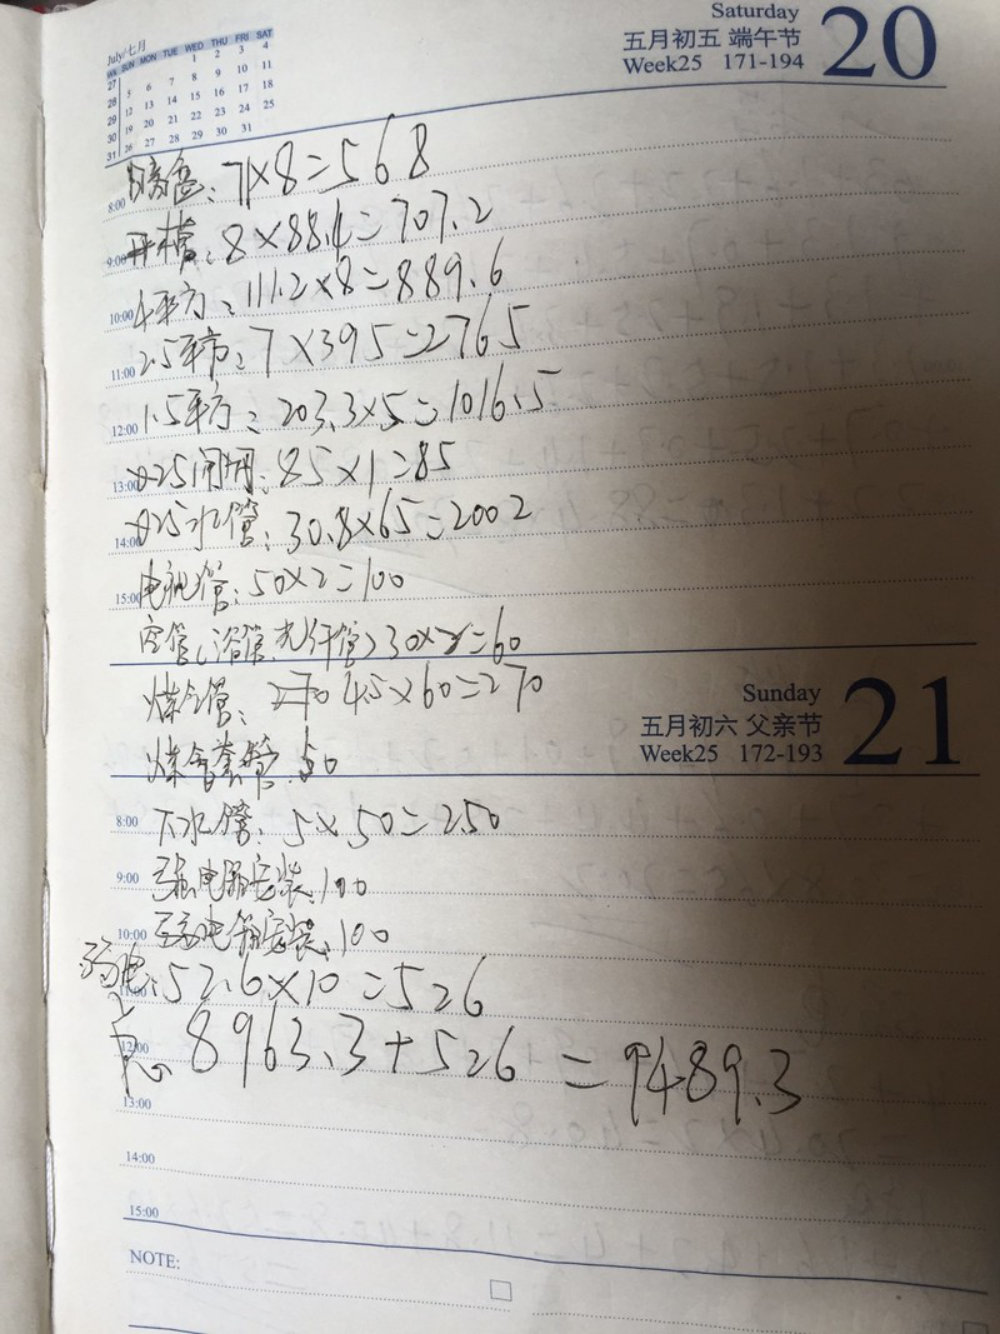 Saturday
五月初五 端午节
Week25 171-194
20
July/七月
WK SUN MON TUE WED THU FRI SAT
27 1 2 3 4
28 5 6 7 8 9 10 11
29 12 13 14 15 16 17 18
30 19 20 21 22 23 24 25
31 26 27 28 29 30 31
8:00 暗盒: 71×8=568
9:00 开槽: 8×88.4=707.2
10:00 4平方: 111.2×8=889.6
11:00 2.5平方: 7×395=2765
12:00 1.5平方: 203.3×5=1016.5
13:00 25闸阀: 85×1=85
14:00 25水管: 30.8×65=2002
15:00 电视管: 50×2=100
空管(浴管.光纤管)30×2=60
煤气管: 4.5×60=270
煤气套管 50
Sunday
五月初六 父亲节
Week25 172-193
21
8:00 下水管: 5×50=250
9:00 强电箱安装.100
10:00 弱电箱安装.100
11:00 弱电.52.6×10=526
12:00 总 8963.3+526=9489.3
13:00
14:00
15:00
NOTE: